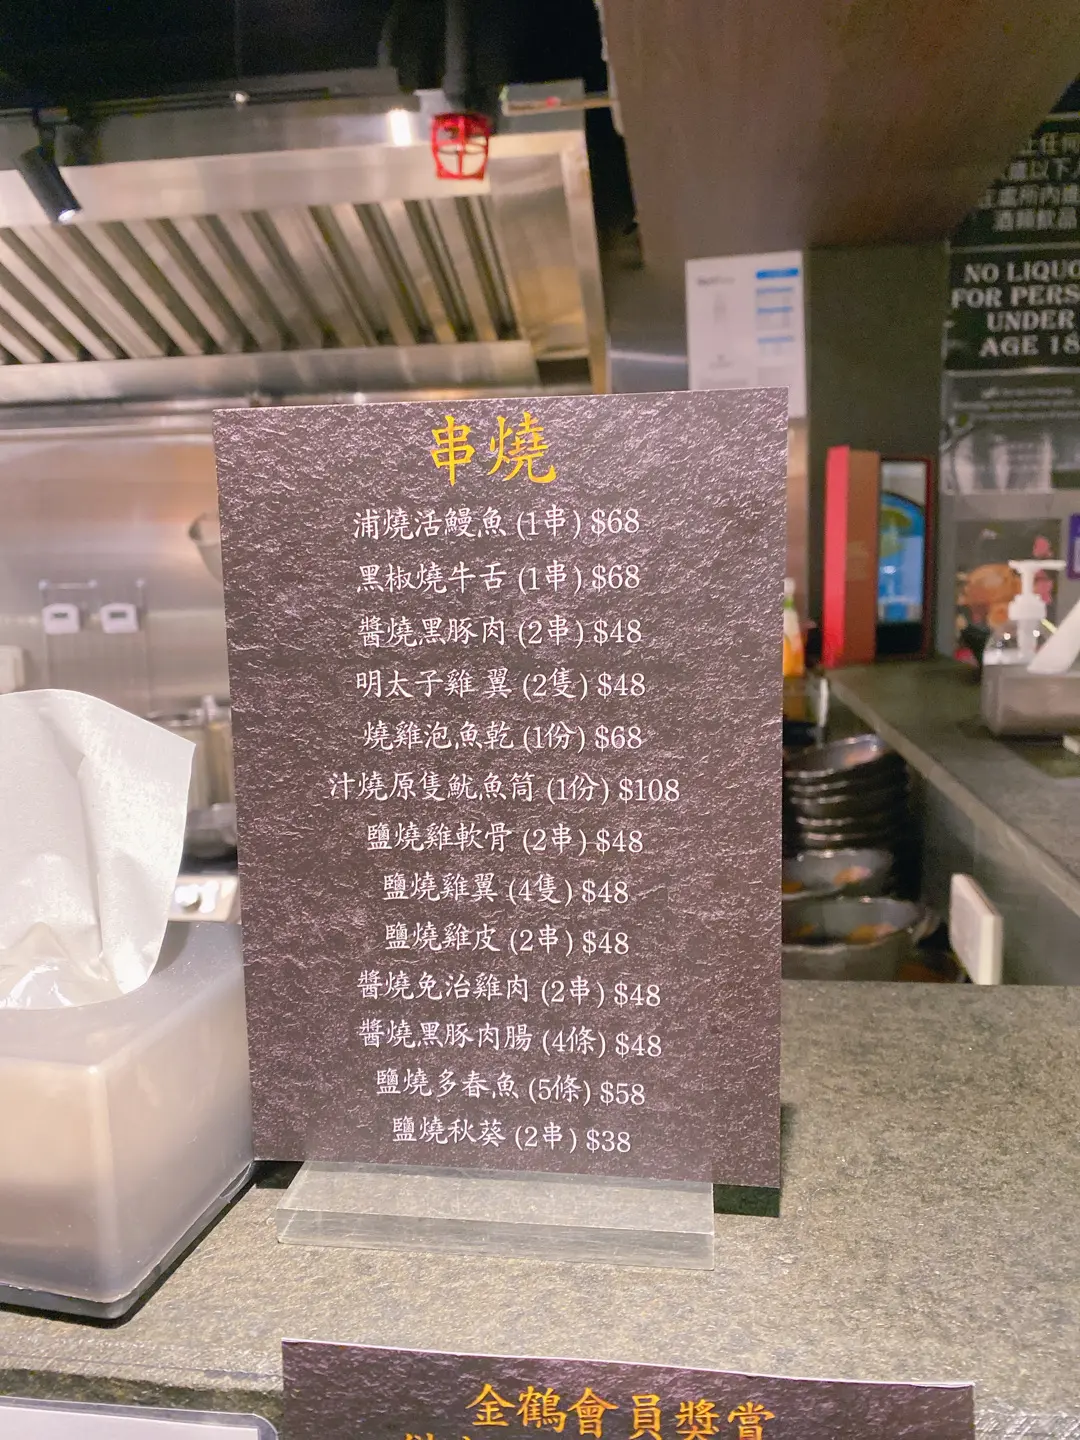 串燒
浦燒活鰻魚 (1串) $68
黑椒燒牛舌 (1串) $68
醬燒黑豚肉 (2串) $48
明太子雞 翼 (2隻) $48
燒雞泡魚乾 (1份) $68
汁燒原隻魷魚筒 (1份) $108
鹽燒雞軟骨 (2串) $48
鹽燒雞翼 (4隻) $48
鹽燒雞皮 (2串) $48
醬燒免治雞肉 (2串) $48
醬燒黑豚肉腸 (4條) $48
鹽燒多春魚 (5條) $58
鹽燒秋葵 (2串) $38
金鶴會員獎賞
任何
以下
酒類飲品
NO LIQUO
FOR PERS
UNDER
AGE 18